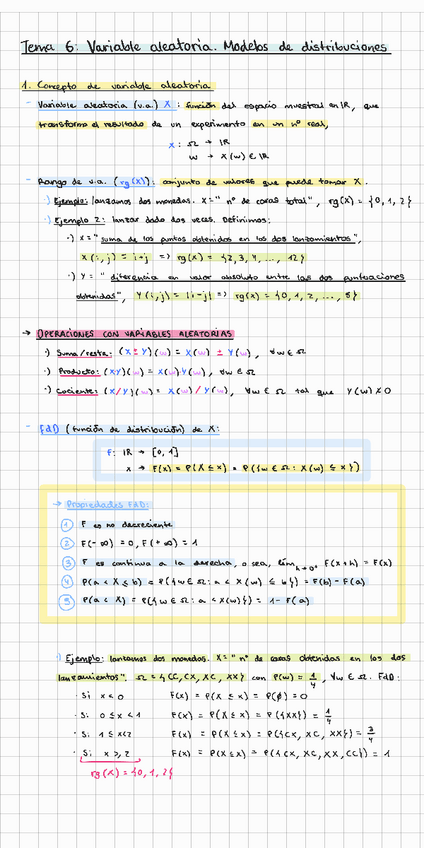 Tema 6: Variable aleatoria. Modelos de distribuciones
1. Concepto de variable aleatoria
- Variable aleatoria (v.a.) X: función del espacio muestral en IR, que
transforma el resultado de un experimento en un nº real,
X: Ω → IR
w → X(w) ∈ IR
- Rango de v.a. (rg(X)): conjunto de valores que puede tomar X.
·) Ejemplo: lanzamos dos monedas. X = "nº de caras total", rg(X) = {0, 1, 2}
·) Ejemplo 2: lanzar dado dos veces. Definimos:
·) X = "suma de los puntos obtenidos en los dos lanzamientos",
X(i,j) = i+j => rg(X) = {2, 3, 4, ..., 12}
·) Y = "diferencia en valor absoluto entre las dos puntuaciones
obtenidas", Y(i,j) = |i-j| => rg(X) = {0, 1, 2, ..., 5}
→ OPERACIONES CON VARIABLES ALEATORIAS
·) Suma/resta: (X ± Y)(w) = X(w) ± Y(w), ∀w ∈ Ω
·) Producto: (XY)(w) = X(w)Y(w), ∀w ∈ Ω
·) Cociente: (X/Y)(w) = X(w)/Y(w), ∀w ∈ Ω tal que Y(w) ≠ 0
- FdD (función de distribución) de X:
F: IR → [0, 1]
x → F(x) = P(X ≤ x) = P({w ∈ Ω: X(w) ≤ x})
→ Propiedades FdD:
1 F es no decreciente
2 F(-∞) = 0, F(+∞) = 1
3 F es continua a la derecha, o sea, lím h→0+ F(x+h) = F(x)
4 P(a < X ≤ b) = P({w ∈ Ω: a < X(w) ≤ b}) = F(b) - F(a)
5 P(a < X) = P({w ∈ Ω: a < X(w)}) = 1 - F(a)
·) Ejemplo: lanzamos dos monedas. X = "nº de caras obtenidas en los dos
lanzamientos". Ω = {CC, CX, XC, XX} con P(w) = 1/4, ∀w ∈ Ω. FdD:
· Si x < 0 F(x) = P(X ≤ x) = P(∅) = 0
· Si 0 ≤ x < 1 F(x) = P(X ≤ x) = P({XX}) = 1/4
· Si 1 ≤ x < 2 F(x) = P(X ≤ x) = P({CX, XC, XX}) = 3/4
· Si x ≥ 2 F(x) = P(X ≤ x) = P({CX, XC, XX, CC}) = 1
rg(X) = {0, 1, 2}